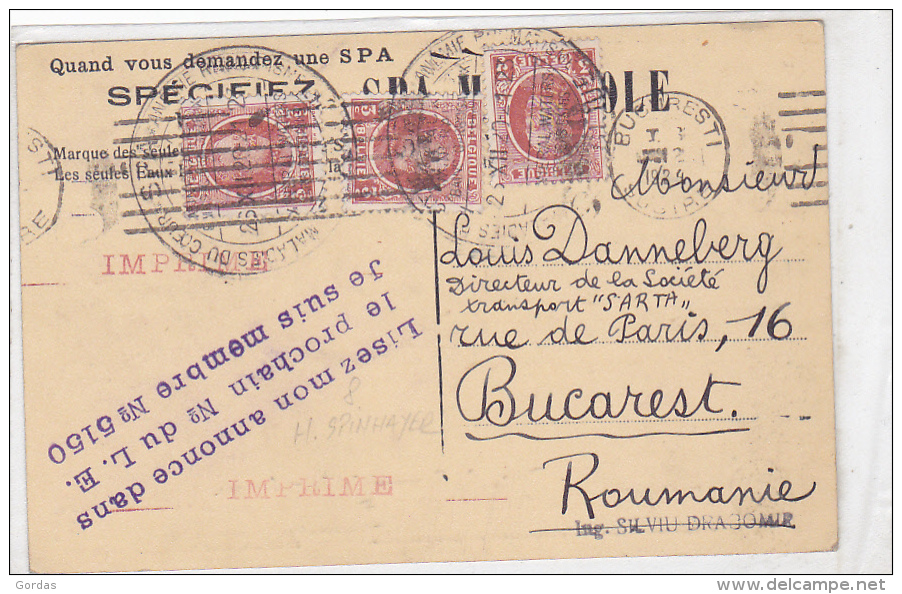 Quand vous demandez une SPA
SPÉCIFIEZ SPA M OLE
Marque des seule
Les seules Eaux
BELGIQUE
BELGIQUE
BELGIQUE
MALADIES DU COEUR
BUCURESTI
1924
IMPRIME
Monsieur
Louis Danneberg
Directeur de la Société
transport "SARTA"
rue de Paris, 16
Bucarest.
Roumanie
Ing. SILVIU DRAGOMIR
Lisez mon annonce dans
le prochain No du L. E.
Je suis membre No 5150
8
H. SPINHAYER
IMPRIME
Gordas
www.delcampe.net